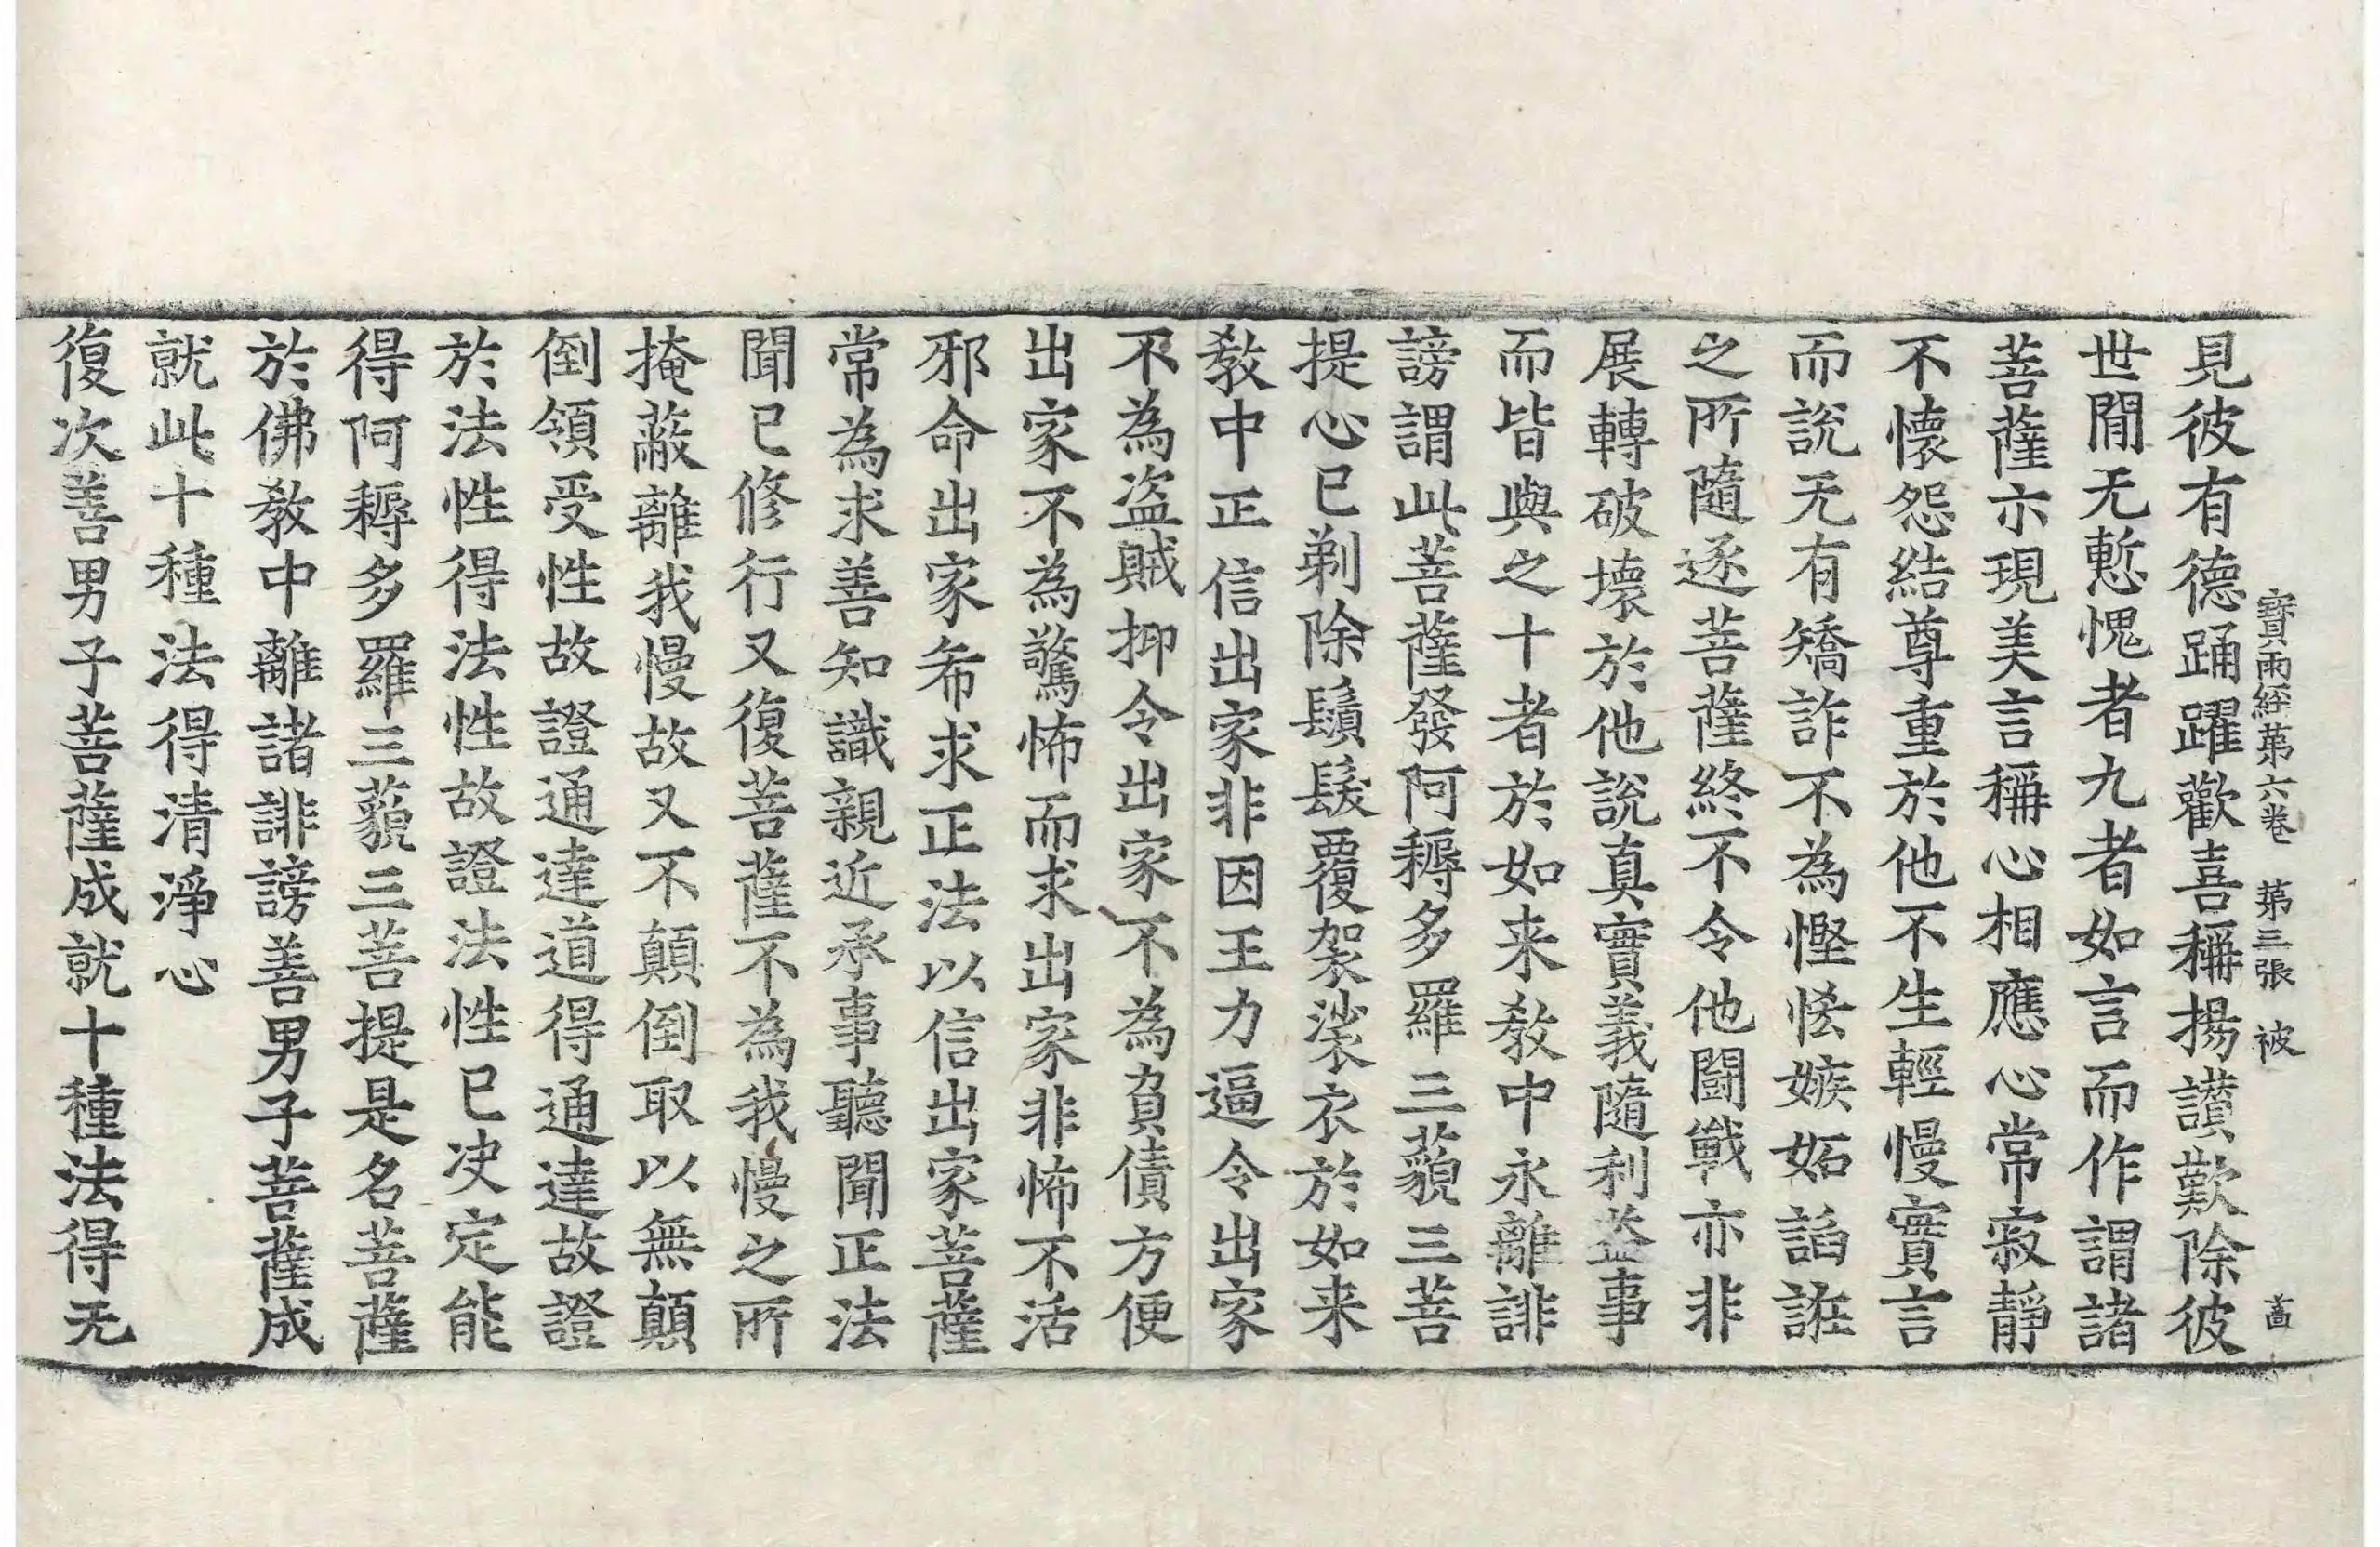 寶雨經第六卷　第三張　被
見彼有德踊躍歡喜稱揚讃歎除彼
世閒无慙愧者九者如言而作謂諸
菩薩示現美言稱心相應心常寂靜
不懷怨結尊重於他不生輕慢實言
而說无有矯詐不為慳悋嫉妬謟誑
之所隨逐菩薩終不令他鬪戰亦非
展轉破壞於他說真實義隨利益事
而皆與之十者於如来敎中永離誹
謗謂此菩薩發阿耨多羅三藐三菩
提心已剃除鬚髮覆袈裟衣於如来
敎中正信出家非因王力逼令出家
不為盗賊抑令出家不為負債方便
出家不為驚怖而求出家非怖不活
邪命出家希求正法以信出家菩薩
常為求善知識親近承事聽聞正法
聞已修行又復菩薩不為我慢之所
掩蔽離我慢故又不顛倒取以無顛
倒領受性故證通達道得通達故證
於法性得法性故證法性已决定能
得阿耨多羅三藐三菩提是名菩薩
於佛敎中離諸誹謗善男子菩薩成
就此十種法得清淨心
復次善男子菩薩成就十種法得无